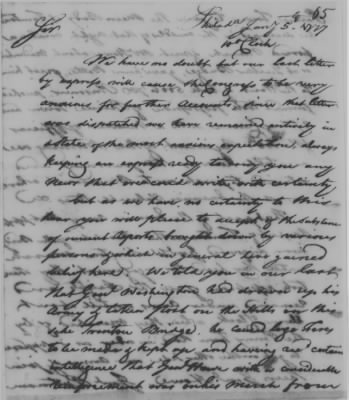 65
Sir Philada Jany 5th 1777
10 OClock
We have no doubt but our last letter
by express will cause the Congress to be very
anxious for further Accounts, since that letter
was dispatched we have remained entirely in
a state of the most anxious expectation always
keeping an express ready to bring you any
News that we could write with certainty
but as we have no certainty to this
hour you will please to accept of the Substance
of various reports brought down by various
persons which in general have gained
belief here. We told you in our last
that Genl Washington had drawn up his
Army & taken Post on the Hills on this
side Trenton Bridge. he caused large fires
to be made & kept up and having certain
Intelligence that Genl Howe with a considerable
reinforcement was on his March from